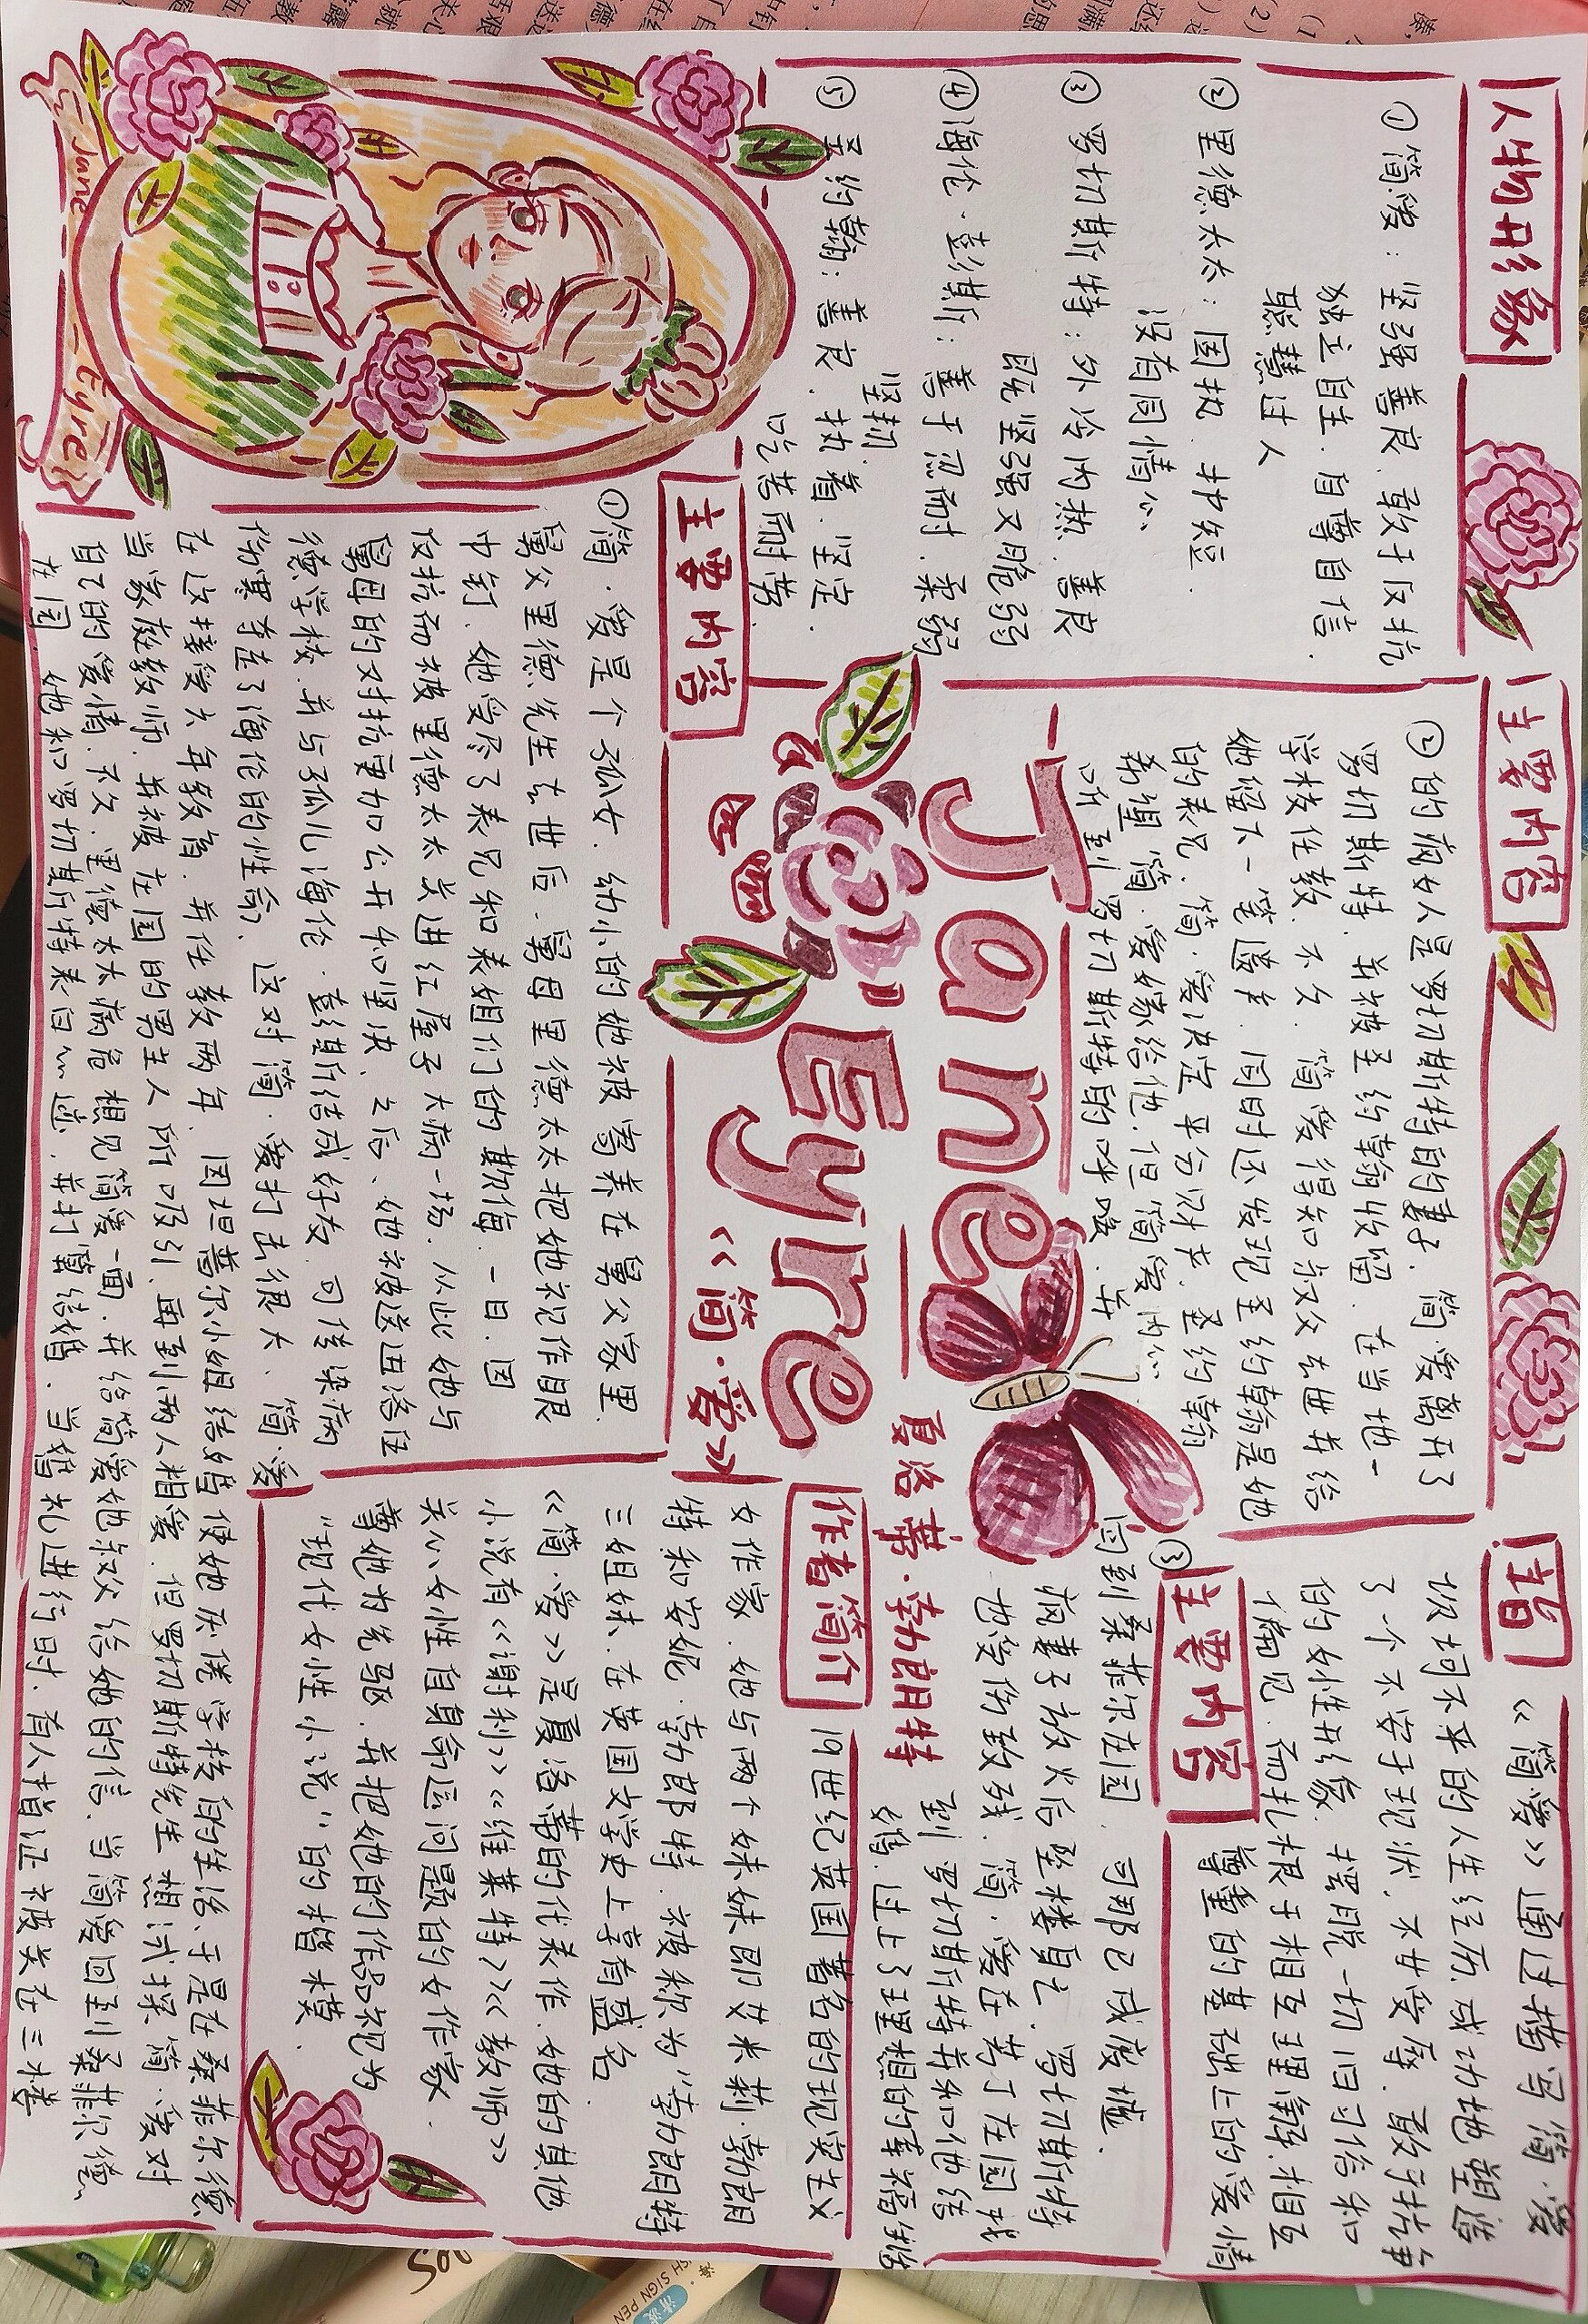 人物形象
①简爱：坚强善良、敢于反抗
独立自主、自尊自信、
聪慧过人
②里德太太：固执、护短、
没有同情心
③罗切斯特：外冷内热、善良
既坚强又脆弱
④海伦·彭斯：善于忍耐、柔弱
坚韧
⑤圣约翰：善良、执着、坚定、
吃苦耐劳
Jane Eyre
主要内容
①简·爱是个孤女、幼小的她被寄养在舅父家里、
舅父里德先生去世后、舅母里德太太把她视作眼
中钉、她受尽了表兄和表姐们的欺侮、一日、因
反抗而被里德太太关进红屋子大病一场、从此她与
舅母的对抗更加公开和坚决、之后、她被送进洛伍
德学校、并与孤儿海伦·彭斯结成好友、可传染病
伤寒夺在了海伦的性命、这对简·爱打击很大、简·爱
在这接受六年教育、并任教两年、因坦普尔小姐结婚使她厌倦学校的生活、于是在桑菲尔德
当家庭教师、并被庄园的男主人所吸引、再到两人相爱、但罗切斯特先生想试探简·爱对
自己的爱情、不久、里德太太病危想见简爱一面、并给简爱她叔父给她的信、当简爱回到桑菲尔德
庄园、她和罗切斯特表白心迹、并打算结婚、当婚礼进行时、有人指证被关在三楼
主要内容
②的疯女人是罗切斯特的妻子、简·爱离开了
罗切斯特、并被圣约翰收留、在当地一
学校任教、不久、简爱得知叔父去世并给
她留下一笔遗产、同时还发现圣约翰是她
的表兄、简·爱决定平分财产、圣约翰
希望简·爱嫁给他、但简爱内心
听到罗切斯特的呼唤、并
Jane
Eyre
《简·爱》
夏洛蒂·勃朗特
主要内容
③回到桑菲尔庄园、可那已成废墟、
疯妻子放火后坠楼身亡、罗切斯特
也受伤致残、简·爱在芬丁庄园找
到罗切斯特并和他结
婚、过上了理想的幸福生活
作者简介
19世纪英国著名的现实主义
女作家、她与两个妹妹即艾米莉·勃朗
特和安妮·勃郎特、被称为“勃朗特
三姐妹、在英国文学史上享有盛名、
《简·爱》是夏洛蒂的代表作、她的其他
小说有《谢利》《维莱特》《教师》
关心女性自身命运问题的女作家、
尊她为先驱、并把她的作品视为
“现代女性小说”的楷模、
主旨
《简·爱》通过描写简·爱
坎坷不平的人生经历、成功地塑造
了一个不安于现状、不甘受辱、敢于抗争
的女性形象、摆脱一切旧习俗和
偏见、而扎根于相互理解、相互
尊重的基础上的爱情